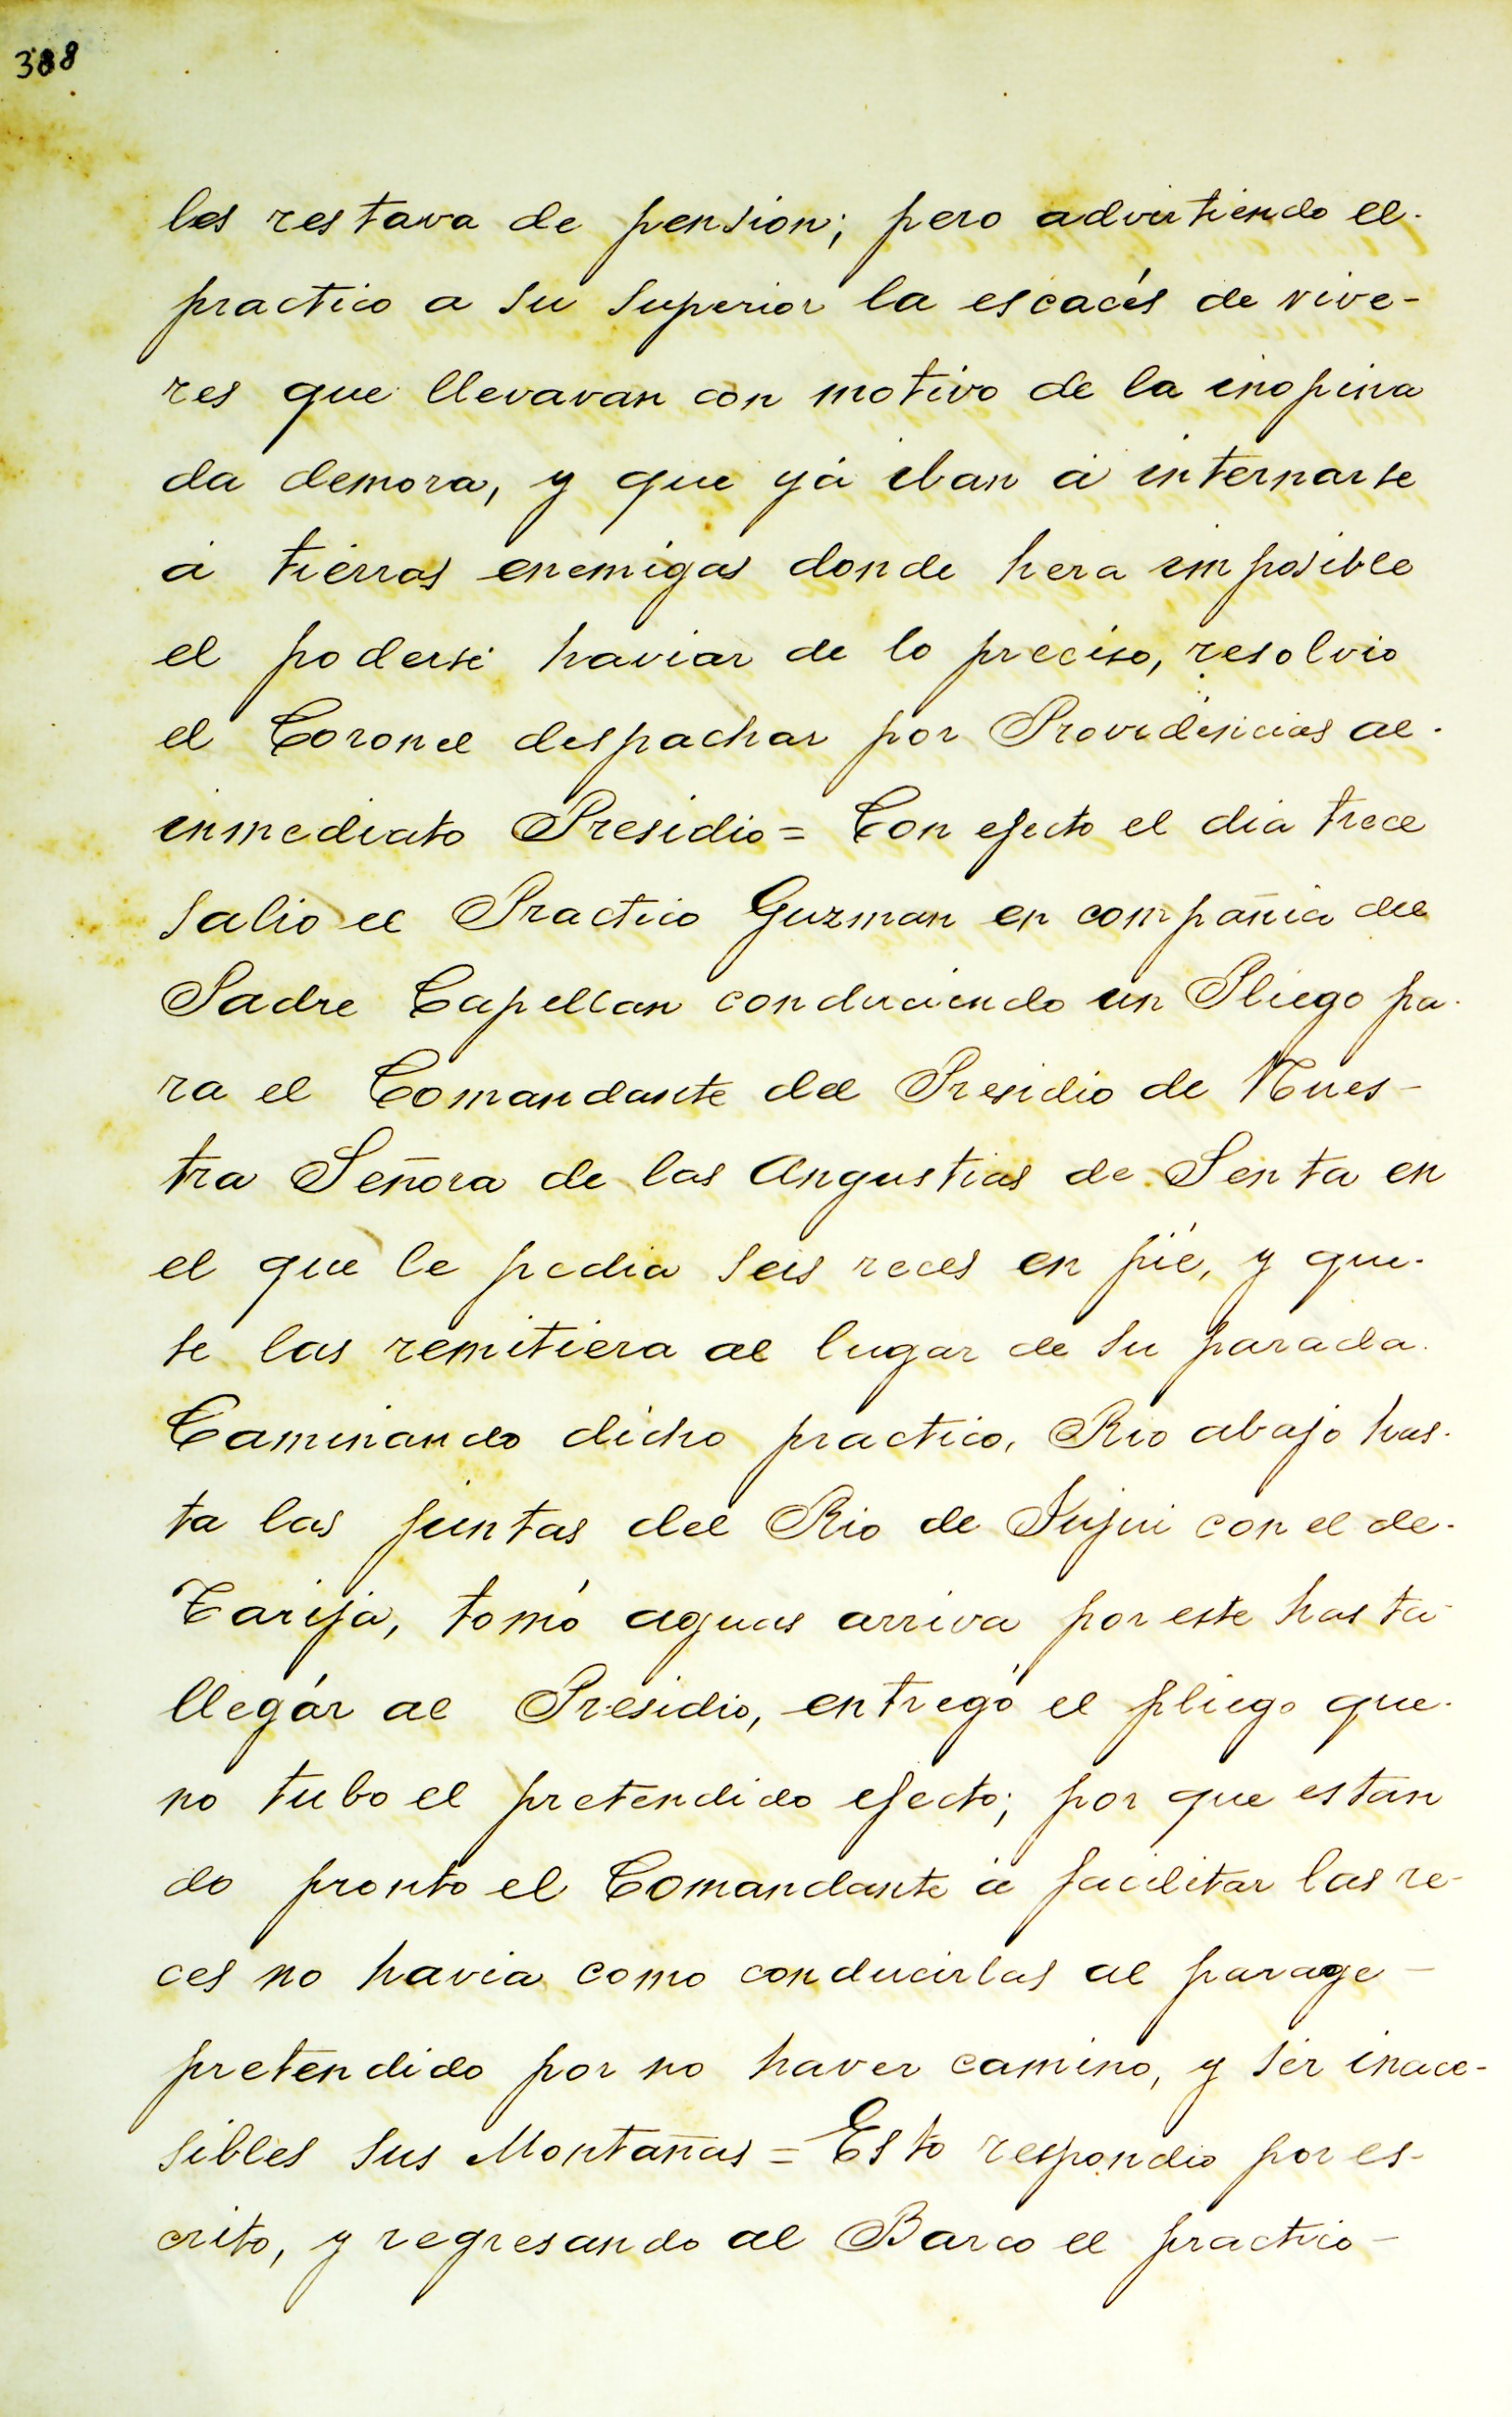 388
les restava de pension; pero advirtiendo el
practico a su superior la escacés de vive-
res que llevavan con motivo de la inopina
da demora, y que yá iban á internarse
á tierras enemigas donde hera imposible
el poderse haviar de lo preciso, resolvio
el Coronel despachar por Providencias al
inmediato Presidio = Con efecto el dia trece
salio el Practico Guzman en compañia del
Padre Capellan conduciendo un Pliego pa-
ra el Comandante del Presidio de Nues-
tra Señora de las Angustias de Senta en
el que le pedia seis reces en pié, y que
se las remitiera al lugar de su parada.
Caminando dicho practico, Rio abajo has-
ta las juntas del Rio de Jujui con el de-
Tarija, tomó aguas arriva por este hasta
llegár al Presidio, entregó el pliego que
no tubo el pretendido efecto; por que estan
do pronto el Comandante á facilitar las re-
ces no havia como conducirlas al parage -
pretendido por no haver camino, y ser inace-
sibles sus Montañas = Esto respondio por es-
crito, y regresando al Barco el practico -